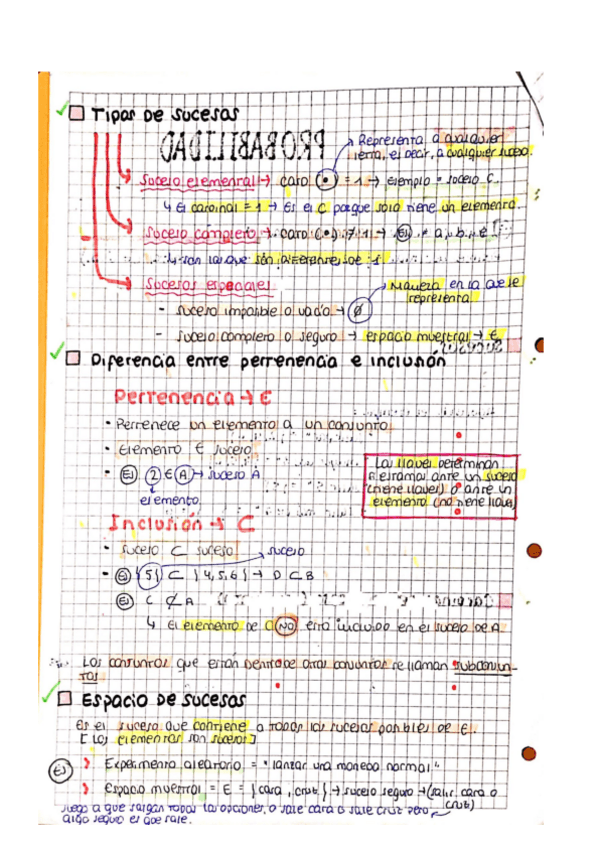 Tipos de sucesos
PROBABILIDAD
Representa a cualquier
letra, es decir, a cualquier suceso.
Suceso elemental → card (•) = 1 → ejemplo = suceso C.
↳ El cardinal = 1 → Es el C porque solo tiene un elemento.
Suceso completo → card (•) ≠ 1 → Ej
↳ son los que son diferentes de 1
Sucesos especiales
Manera en la que se
representa
- suceso imposible o vacío → ∅
- suceso completo o seguro → espacio muestral → E
Diferencia entre pertenencia e inclusión
Pertenencia → ∈
• Pertenece un elemento a un conjunto
• Elemento ∈ suceso
• Ej 2 ∈ A → suceso A
elemento
Las llaves determinan
si estamos ante un suceso
(tiene llaves) o ante un
elemento (no tiene llave)
Inclusión → ⊂
• suceso ⊂ suceso
suceso
• Ej {5} ⊂ {4,5,6} → D ⊂ B
Ej C ⊄ A
↳ El elemento de C NO está incluido en el suceso de A.
Los conjuntos que están dentro de otros conjuntos se llaman subconjun-
tos.
Espacio de sucesos
Es el suceso que contiene a todos los sucesos posibles de E.
[Los elementos son sucesos]
Ej
Experimento aleatorio = "lanzar una moneda normal"
Espacio muestral = E = {cara, cruz} → suceso seguro → (salir cara o
cruz)
juego a que salgan todas las opciones, o sale cara o sale cruz pero
algo seguro es que sale.